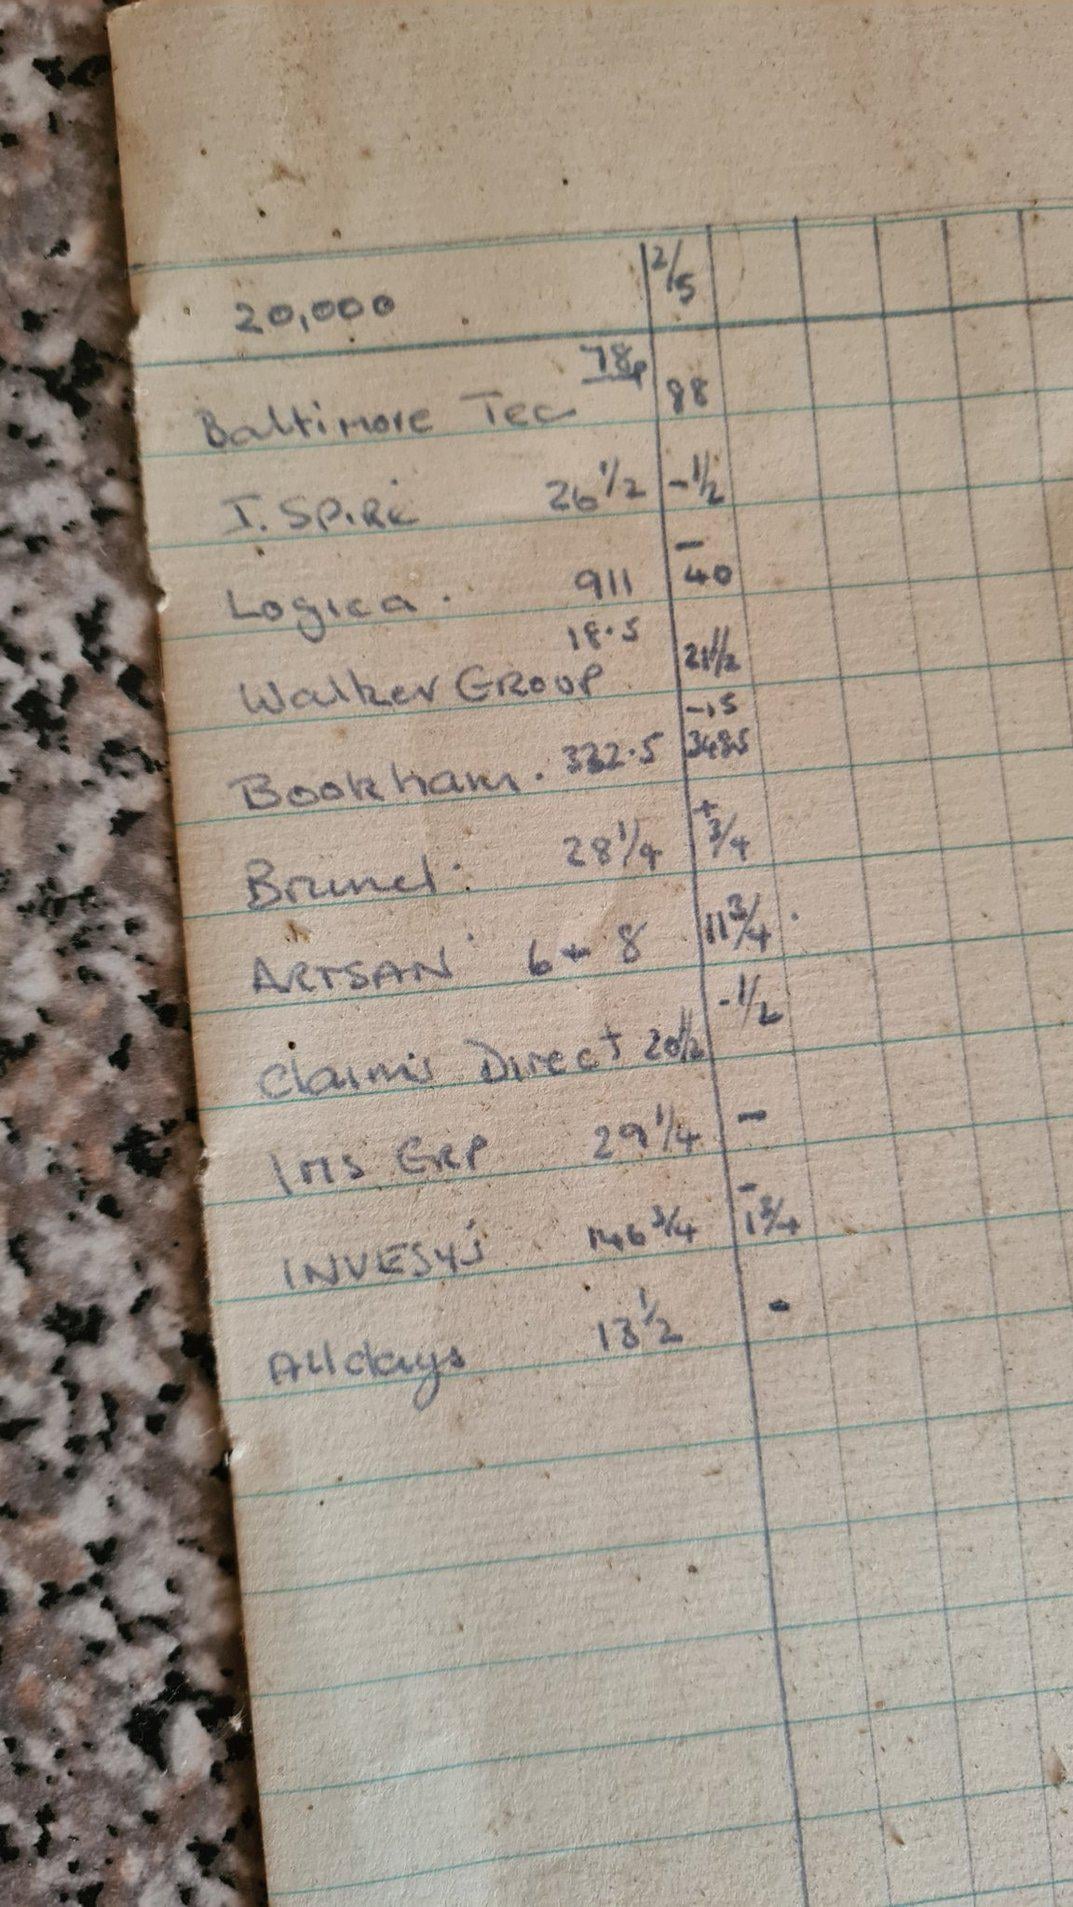 20,000 2/5
78p
Baltimore Tec 88
I. SPiRE 26 1/2 -1/2
Logica. 911 -40
18.5
Walker GROUP 21 1/2
-.5
Bookham. 332.5 348.5
Brunel. 28 1/4 +3/4
ARTSAN 6 + 8 11 3/4
Claims Direct 20 1/2 -1/2
IMS GRP 29 1/4 -
INVESYS 146 3/4 -1 3/4
Alldays 13 1/2 -